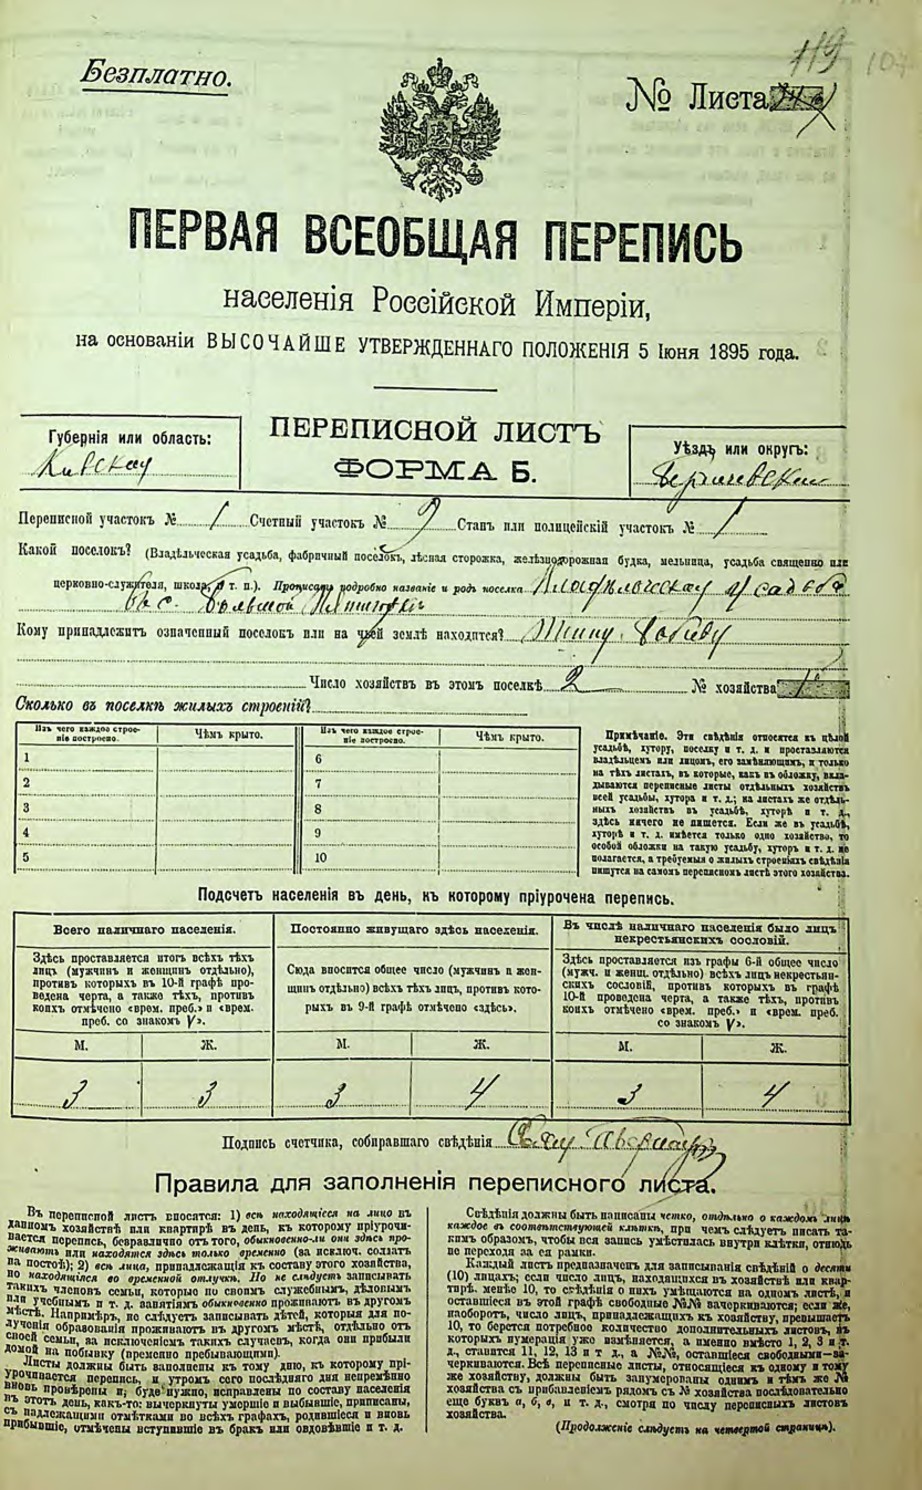 119
107
Безплатно.
№ Листа
ПЕРВАЯ ВСЕОБЩАЯ ПЕРЕПИСЬ
населенія Россійской Имперіи,
на основаніи ВЫСОЧАЙШЕ УТВЕРЖДЕННАГО ПОЛОЖЕНІЯ 5 Іюня 1895 года.
ПЕРЕПИСНОЙ ЛИСТЪ
ФОРМА Б.
Губернія или область:
Кіевская
Уѣздъ или округъ:
Бердичевскій
Переписной участокъ № 1 Счетный участокъ № 9 Станъ или полицейскій участокъ № 1
Какой поселокъ? (Владѣльческая усадьба, фабричный посёлокъ, лѣсная сторожка, желѣзнодорожная будка, мельница, усадьба священно или
церковно-служителя, школа, и т. п.). Прописать подробно названіе и родъ поселка Владѣльческая усадьба
въ с. Большой
Кому принадлежитъ означенный поселокъ или на чьей землѣ находится?
Число хозяйствъ въ этомъ поселкѣ 2 № хозяйства 1
Сколько въ поселкѣ жилыхъ строеній?
Изъ чего каждое строе-
ніе построено.
Чѣмъ крыто.
Изъ чего каждое строе-
ніе построено.
Чѣмъ крыто.
1
2
3
4
5
6
7
8
9
10
Примѣчаніе. Эти свѣдѣнія относятся къ цѣлой
усадьбѣ, хутору, поселку и т. д. и проставляются
владѣльцемъ или лицомъ, его замѣняющимъ, и только
на тѣхъ листахъ, въ которые, какъ въ обложку, вкла-
дываются переписные листы отдѣльныхъ хозяйствъ
всей усадьбы, хутора и т. д.; на листахъ же отдѣль-
ныхъ хозяйствъ въ усадьбѣ, хуторѣ и т. д.,
здѣсь ничего не пишется. Если же въ усадьбѣ,
хуторѣ и т. д. имѣется только одно хозяйство, то
особой обложки на такую усадьбу, хуторъ и т. д. не
полагается, а требуемыя о жилыхъ строеніяхъ свѣдѣнія
пишутся на самомъ переписномъ листѣ этого хозяйства.
Подсчетъ населенія въ день, къ которому пріурочена перепись.
Всего наличнаго населенія.
Здѣсь проставляется итогъ всѣхъ тѣхъ
лицъ (мужчинъ и женщинъ отдѣльно),
противъ которыхъ въ 10-й графѣ про-
ведена черта, а также тѣхъ, противъ
коихъ отмѣчено «врем. преб.» и «врем.
преб. со знакомъ V».
Постоянно живущаго здѣсь населенія.
Сюда вносится общее число (мужчинъ и жен-
щинъ отдѣльно) всѣхъ тѣхъ лицъ, противъ кото-
рыхъ въ 9-й графѣ отмѣчено «здѣсь».
Въ числѣ наличнаго населенія было лицъ
некрестьянскихъ сословій.
Здѣсь проставляется изъ графы 6-й общее число
(мужч. и женщ. отдѣльно) всѣхъ лицъ некрестьян-
скихъ сословій, противъ которыхъ въ графѣ
10-й проведена черта, а также тѣхъ, противъ
коихъ отмѣчено «врем. преб.» и «врем. преб.
со знакомъ V».
М. Ж. М. Ж. М. Ж.
3 3 3 4 3 4
Подпись счетчика, собиравшаго свѣдѣнія
Правила для заполненія переписного листа.
Въ переписной листъ вносятся: 1) всѣ находящіеся на лицо въ
данномъ хозяйствѣ или квартирѣ въ день, къ которому пріурочи-
вается перепись, безразлично отъ того, обыкновенно-ли они здѣсь про-
живаютъ или находятся здѣсь только временно (за исключ. солдатъ
на постоѣ); 2) всѣ лица, принадлежащія къ составу этого хозяйства,
но находящіяся во временной отлучкѣ. Но не слѣдуетъ записывать
такихъ членовъ семьи, которые по своимъ служебнымъ, дѣловымъ
или учебнымъ и т. д. занятіямъ обыкновенно проживаютъ въ другомъ
мѣстѣ. Напримѣръ, не слѣдуетъ записывать дѣтей, которыя для по-
лученія образованія проживаютъ въ другомъ мѣстѣ, отдѣльно отъ
своей семьи, за исключеніемъ такихъ случаевъ, когда они прибыли
домой на побывку (временно пребывающими).
Листы должны быть заполнены къ тому дню, къ которому прі-
урочивается перепись, и утромъ сего послѣдняго дня непремѣнно
вновь провѣрены и, буде нужно, исправлены по составу населенія
въ этотъ день, какъ-то: вычеркнуты умершіе и выбывшіе, приписаны,
съ надлежащими отмѣтками во всѣхъ графахъ, родившіеся и вновь
прибывшіе, отмѣчены вступившіе въ бракъ или овдовѣвшіе и т. д.
Свѣдѣнія должны быть написаны четко, отдѣльно о каждомъ лицѣ
каждое въ соотвѣтствующей клѣткѣ, при чемъ слѣдуетъ писать та-
кимъ образомъ, чтобы вся запись умѣстилась внутри клѣтки, отнюдь
не переходя за ея рамки.
Каждый листъ предназначенъ для записыванія свѣдѣній о десяти
(10) лицахъ; если число лицъ, находящихся въ хозяйствѣ или квар-
тирѣ, менѣе 10, то свѣдѣнія о нихъ умѣщаются на одномъ листѣ, и
оставшіеся въ этой графѣ свободные №№ вачеркиваются; если же,
наоборотъ, число лицъ, принадлежащихъ къ хозяйству, превышаетъ
10, то берется потребное количество дополнительныхъ листовъ, въ
которыхъ нумерація ужо измѣняется, а именно вмѣсто 1, 2, 3 и т.
д., ставится 11, 12, 13 и т. д., а №№, оставшіеся свободными—за-
черкиваются. Всѣ переписные листы, относящіеся къ одному и тому
же хозяйству, должны быть занумерованы однимъ и тѣмъ же №
хозяйства съ прибавленіемъ рядомъ съ № хозяйства послѣдовательно
еще буквъ а, б, в, и т. д., смотря по числу переписныхъ листовъ
хозяйства.
(Продолженіе слѣдуетъ на четвертой страницѣ).